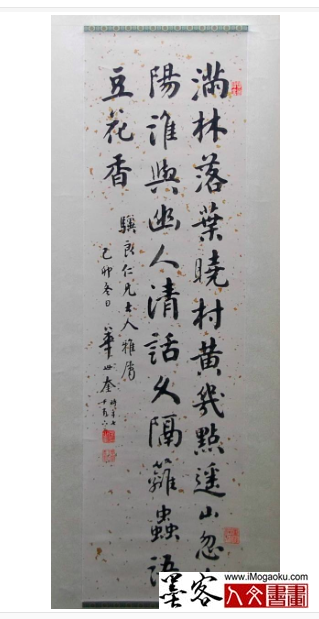 滿林落葉曉村黃幾點遥山忽
陽誰與幽人清話久隔籬蟲語
豆花香
仁兄大人雅屬
己卯冬日
華世奎時年七十有六
墨客
www.iMogaoku.com
人文書畫